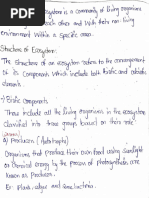 Ecosystem is a community of living organisms
each other and with their non living
Environment within a specific area.
Structure of Ecosystem:
The Structure of an ecosystem refers to the arrangement
of its Components which include both biotic and abiotic
domains.
1) Biotic Components
These include all the living organisms in the ecosystem
classified into three groups based on their role
a) Producers (Autotrophs)
Organisms that produce their own food using sunlight
or chemical energy by the process of photosynthesis are
known as Producers.
Ex: Plants, algae and some bacteria.